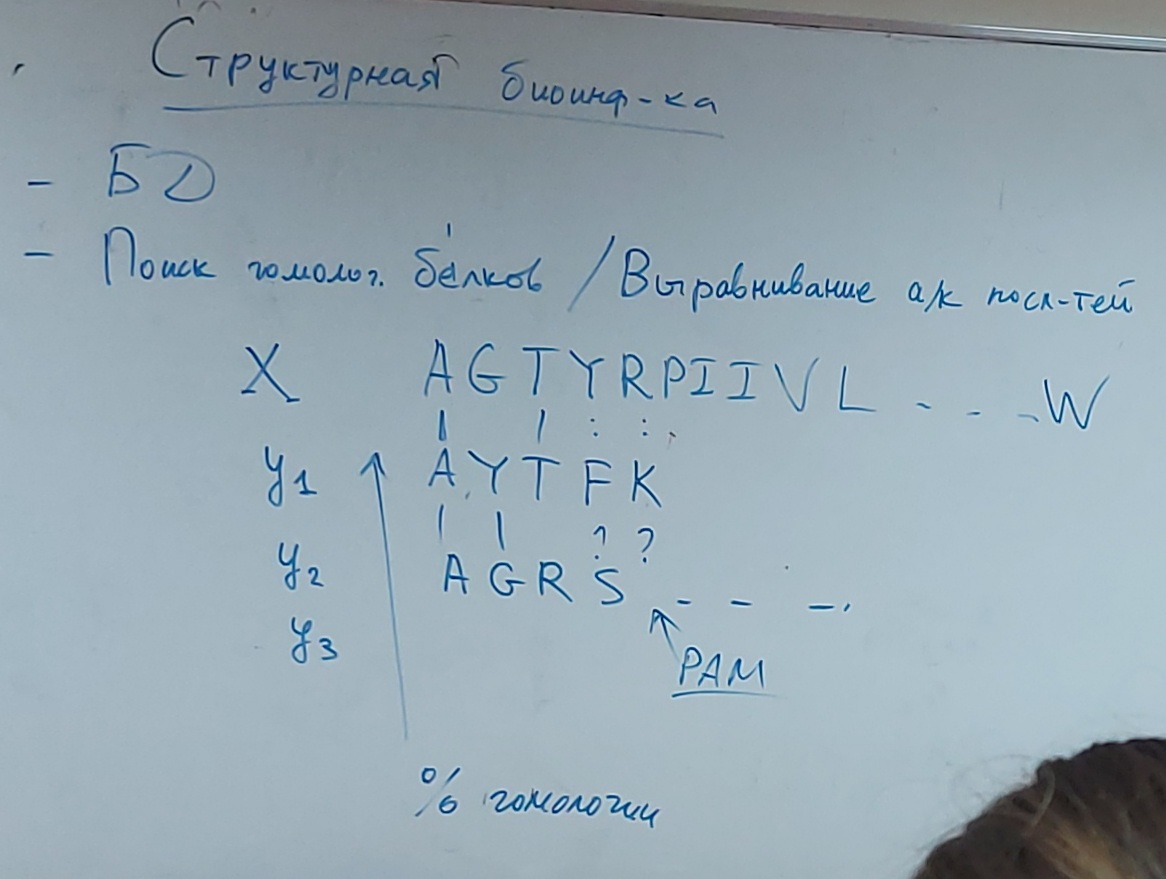 Структурная биоинф-ка
- БД
- Поиск гомолог. белков / Выравнивание а/к посл-тей
X AGTYRPIIVL - - - W
| | : :
y1 AYTFK
| | ? ?
y2 AGRS - - -
y3
PAM
% гомологии